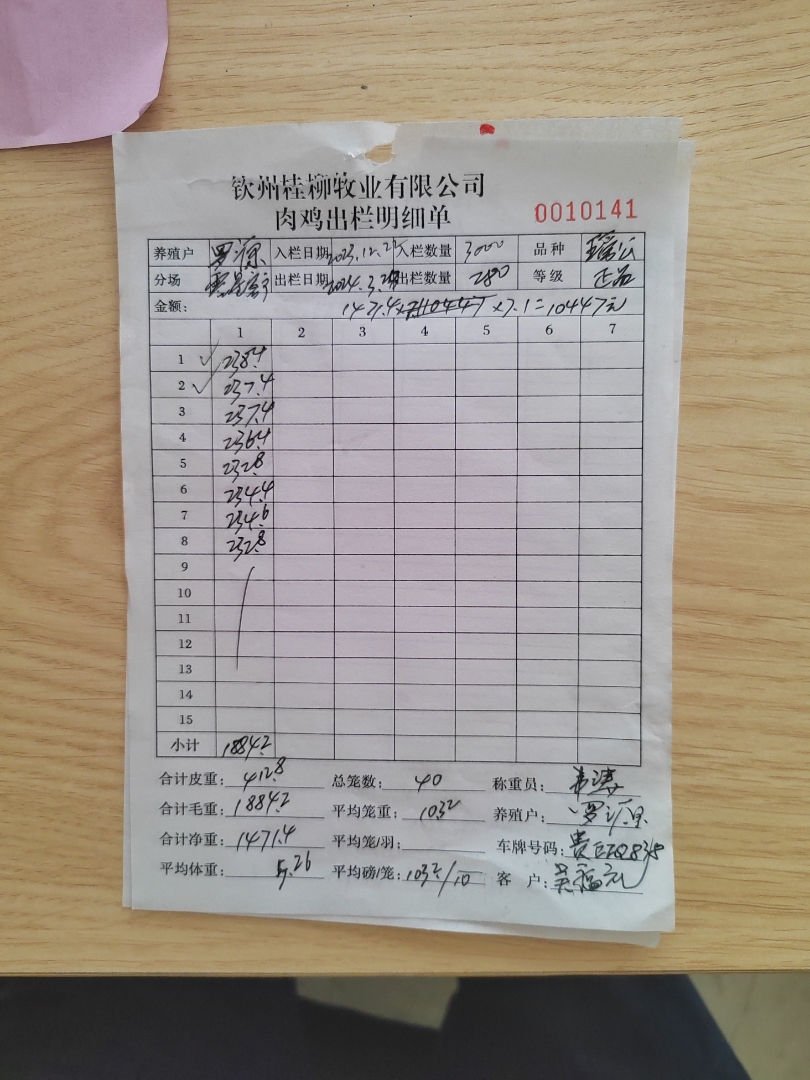 钦州桂柳牧业有限公司
肉鸡出栏明细单
0010141
养殖户 罗源 入栏日期 2023.12.2 入栏数量 3000 品种 瑶公
分场 出栏日期 2024.3. 出栏数量 280 等级 正品
金额: 1471.4 ×7.1=10447元
1 2 3 4 5 6 7
1 238.4
2 237.4
3 237.4
4 236.4
5 232.8
6 234.4
7 234.6
8 232.8
9
10
11
12
13
14
15
小计 1884.2
合计皮重: 412.8 总笼数: 40 称重员:
合计毛重: 1884.2 平均笼重: 10.32 养殖户: 罗源
合计净重: 1471.4 平均笼/羽: 车牌号码: 贵
平均体重: 5.26 平均磅/笼: 10.32/10 客 户: 吴福元